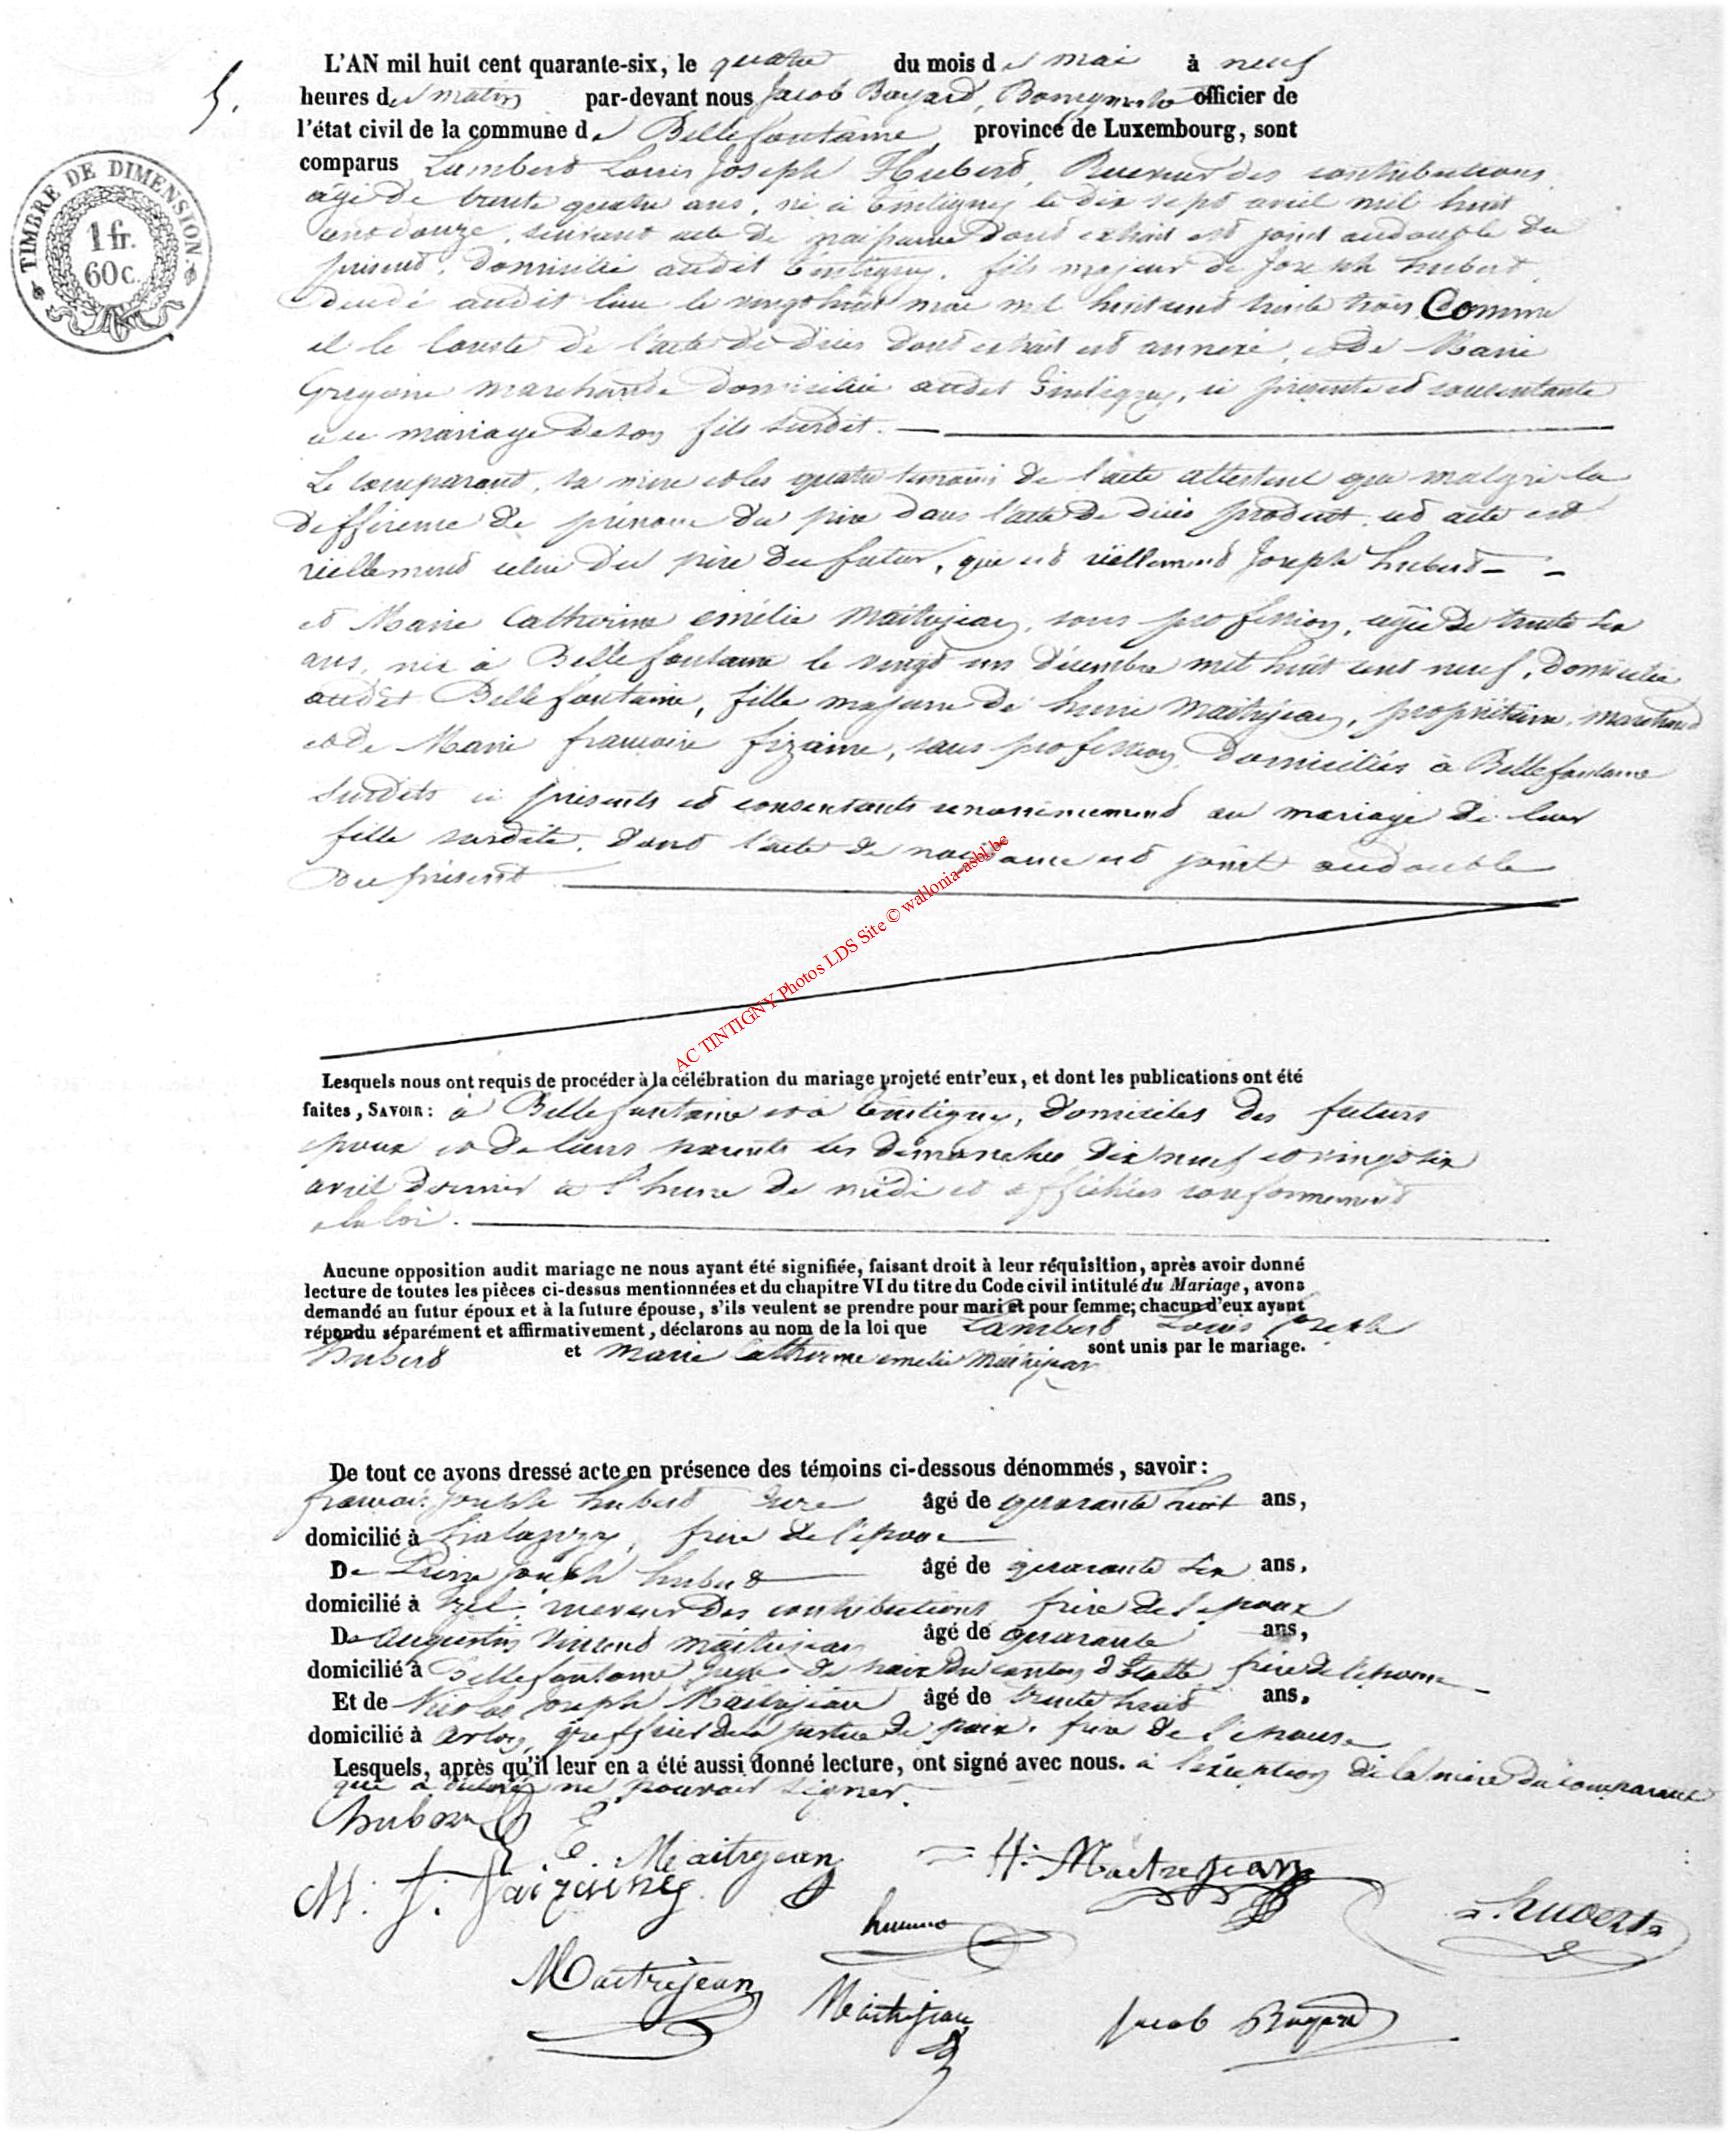 5.
TIMBRE DE DIMENSION
1 fr.
60 c.
L'AN mil huit cent quarante-six, le quatre du mois de mai à neuf
heures du matin par-devant nous Jacob Bayard, Bourgmestre officier de
l'état civil de la commune de Bellefontaine, province de Luxembourg, sont
comparus Lambert Louis Joseph Hubert, Receveur des contributions,
âgé de trente quatre ans, né à Tintigny le dix sept avril mil huit
cent douze, suivant acte de naissance dont extrait est joint au double du
présent, domicilié audit Tintigny, fils majeur de Joseph hubert,
décédé audit lieu le vingt huit mai mil huit cent trente trois, Comme
il le conste de l'acte de décès dont extrait est annexé, et de Marie
Gregoire marchande domiciliée audit Tintigny, ci présente et consentante
à ce mariage de son fils susdit.
Le comparant, sa mère et les quatre temoins de l'acte attestent que malgré la
différence de prénom du père dans l'acte de décès produit, cet acte est
réellement celui du père du futur, qui est réellement Joseph hubert
et Marie Catherine emélie Maitrejean, sans profession, agée de trente six
ans, née à Bellefontaine le vingt un décembre mil huit cent neuf, domiciliée
audit Bellefontaine, fille majeure de henri Maitrejean, propriétaire, marchand
et de Marie francoise fizaine, sans profession, domiciliés à Bellefontaine
susdits ci présents et consentants au mariage de leur
fille susdite, dont l'acte de naissance est joint au double
du présent
AC TINTIGNY Photos LDS Site © wallonia-asbl.be
Lesquels nous ont requis de procéder à la célébration du mariage projeté entr'eux, et dont les publications ont été
faites, SAVOIR: à Bellefontaine et à Tintigny, domiciles des futurs
époux et de leurs parents les dimanches dix neuf et vingt six
avril dernier à l'heure de midi et affichées conformément
à la loi.
Aucune opposition audit mariage ne nous ayant été signifiée, faisant droit à leur réquisition, après avoir donné
lecture de toutes les pièces ci-dessus mentionnées et du chapitre VI du titre du Code civil intitulé du Mariage, avons
demandé au futur époux et à la future épouse, s'ils veulent se prendre pour mari et pour femme; chacun d'eux ayant
répondu séparément et affirmativement, déclarons au nom de la loi que Lambert Louis Joseph
hubert et Marie Catherine emelie Maitrejean sont unis par le mariage.
De tout ce avons dressé acte en présence des témoins ci-dessous dénommés, savoir:
francois Joseph hubert âgé de quarante huit ans,
domicilié à halanzy, frère de l'époux
De Pierre Joseph hubert âgé de quarante six ans,
domicilié à receveur des contributions, frère de l'epoux
De Augustin Vincent Maitrejean âgé de quarante ans,
domicilié à Bellefontaine, juge de paix du canton d'Etalle frère de l'epouse
Et de Nicolas Joseph Maitrejean âgé de trente huit ans,
domicilié à Arlon, greffier de la justice de paix, frère de l'epouse
Lesquels, après qu'il leur en a été aussi donné lecture, ont signé avec nous. à l'exception de la mère du comparant
qui a déclaré ne pouvoir signer.
hubert
E. Maitrejean
H. Maitrejean
M. f. faizaine
hubert
Maitrejean
Maitrejean
Jacob Bayard